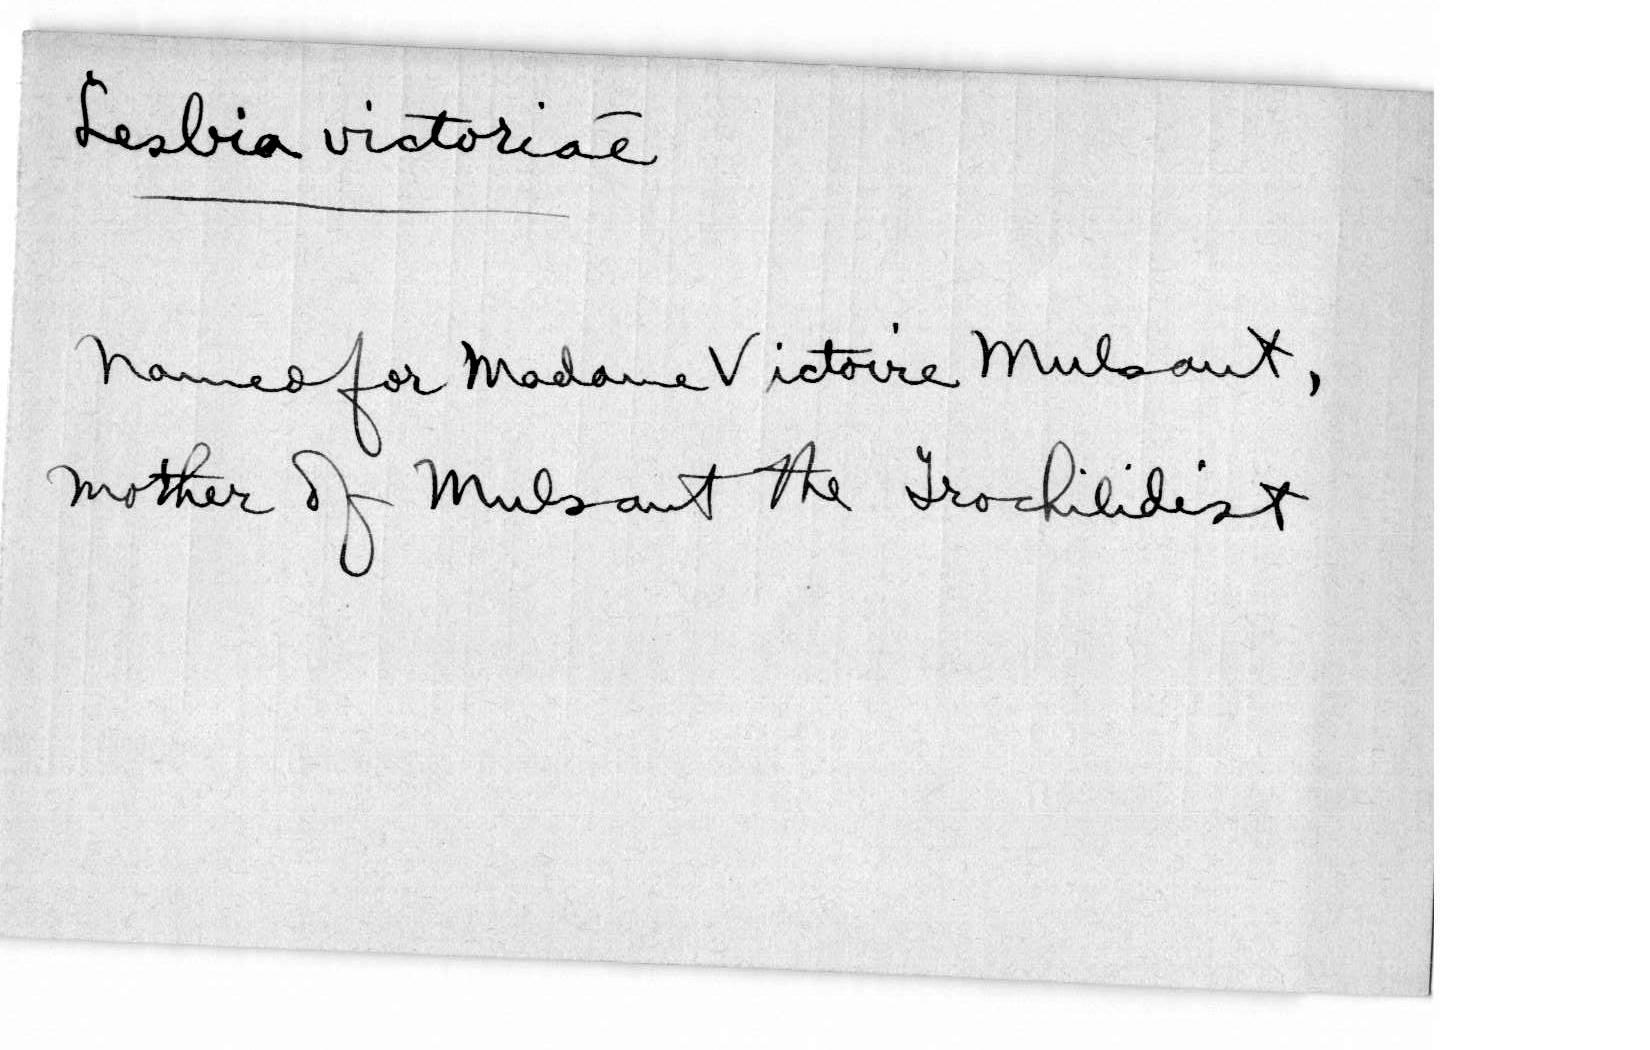 Lesbia victoriae
Named for Madame Victoire Mulsant,
mother of Mulsant the Trochilidist